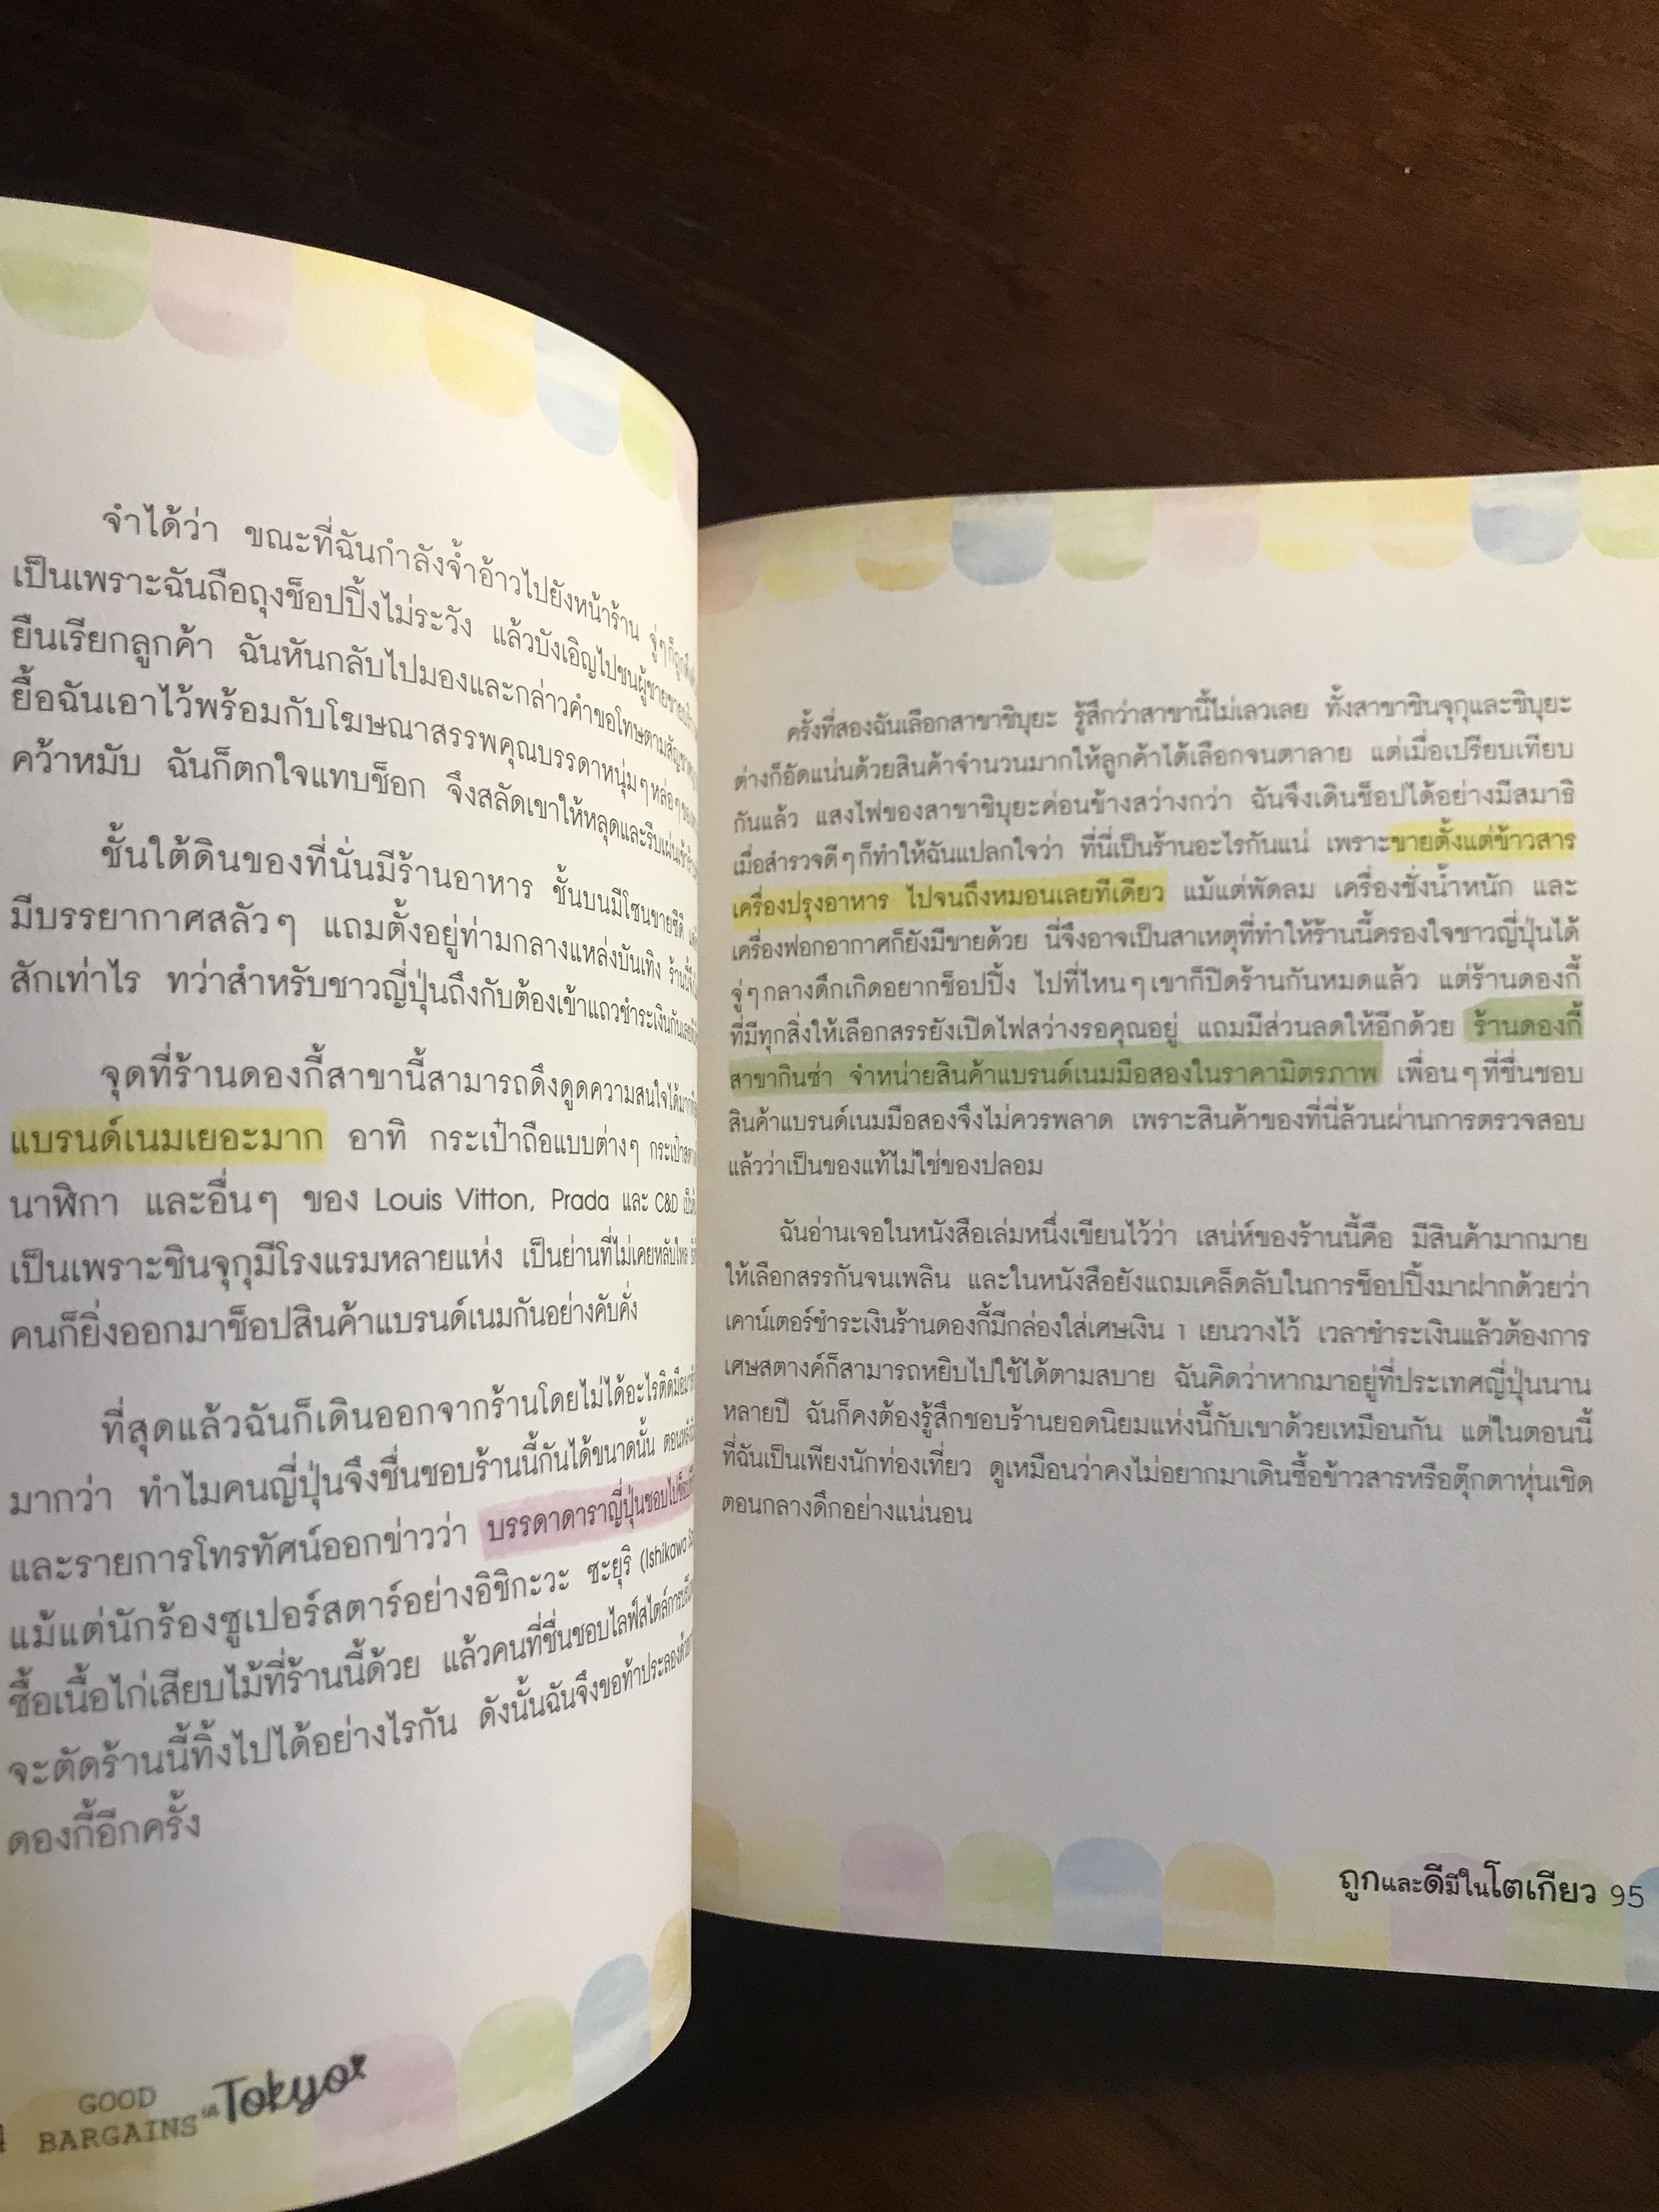 จำได้ว่า ขณะที่ฉันกำลังจ้ำอ้าวไปยังหน้าร้าน จู่ๆ
เป็นเพราะฉันถือถุงช็อปปิ้งไม่ระวัง แล้วบังเอิญไปชนผู้ชาย
ยืนเรียกลูกค้า ฉันหันกลับไปมองและกล่าวคำขอโทษตาม
ยื้อฉันเอาไว้พร้อมกับโฆษณาสรรพคุณบรรดาหนุ่มๆ หล่อๆ
คว้าหมับ ฉันก็ตกใจแทบช็อก จึงสลัดเขาให้หลุดและรีบเผ่น
ชั้นใต้ดินของที่นั่นมีร้านอาหาร ชั้นบนมีโซนขายซีดี
มีบรรยากาศสลัวๆ แถมตั้งอยู่ท่ามกลางแหล่งบันเทิง
สักเท่าไร ทว่าสำหรับชาวญี่ปุ่นถึงกับต้องเข้าแถวชำระเงินกันเลย
จุดที่ร้านดองกี้สาขานี้สามารถดึงดูดความสนใจได้
แบรนด์เนมเยอะมาก อาทิ กระเป๋าถือแบบต่างๆ
นาฬิกา และอื่นๆ ของ Louis Vitton, Prada และ C&D
เป็นเพราะชินจุกุมีโรงแรมหลายแห่ง เป็นย่านที่ไม่เคยหลับใหล
คนก็ยิ่งออกมาช็อปสินค้าแบรนด์เนมกันอย่างคับคั่ง
ที่สุดแล้วฉันก็เดินออกจากร้านโดยไม่ได้อะไรติดมือ
มากว่า ทำไมคนญี่ปุ่นจึงชื่นชอบร้านนี้กันได้ขนาดนั้น
และรายการโทรทัศน์ออกข่าวว่า บรรดาดาราญี่ปุ่นชอบไป
แม้แต่นักร้องซูเปอร์สตาร์อย่างอิชิกะวะ ซะยุริ (Ishikawa
ซื้อเนื้อไก่เสียบไม้ที่ร้านนี้ด้วย แล้วคนที่ชื่นชอบไลฟ์สไตล์
จะตัดร้านนี้ทิ้งไปได้อย่างไรกัน ดังนั้นฉันจึงขอท้าประลอง
ดองกี้อีกครั้ง
GOOD
BARGAINS in Tokyo
ครั้งที่สองฉันเลือกสาขาชิบุยะ รู้สึกว่าสาขานี้ไม่เลวเลย ทั้งสาขาชินจุกุและชิบุยะ
ต่างก็อัดแน่นด้วยสินค้าจำนวนมากให้ลูกค้าได้เลือกจนตาลาย แต่เมื่อเปรียบเทียบ
กันแล้ว แสงไฟของสาขาชิบุยะค่อนข้างสว่างกว่า ฉันจึงเดินช็อปได้อย่างมีสมาธิ
เมื่อสำรวจดีๆ ก็ทำให้ฉันแปลกใจว่า ที่นี่เป็นร้านอะไรกันแน่ เพราะขายตั้งแต่ข้าวสาร
เครื่องปรุงอาหาร ไปจนถึงหมอนเลยทีเดียว แม้แต่พัดลม เครื่องชั่งน้ำหนัก และ
เครื่องฟอกอากาศก็ยังมีขายด้วย นี่จึงอาจเป็นสาเหตุที่ทำให้ร้านนี้ครองใจชาวญี่ปุ่นได้
จู่ๆ กลางดึกเกิดอยากช็อปปิ้ง ไปที่ไหนๆ เขาก็ปิดร้านกันหมดแล้ว แต่ร้านดองกี้
ที่มีทุกสิ่งให้เลือกสรรยังเปิดไฟสว่างรอคุณอยู่ แถมมีส่วนลดให้อีกด้วย ร้านดองกี้
สาขากินซ่า จำหน่ายสินค้าแบรนด์เนมมือสองในราคามิตรภาพ เพื่อนๆ ที่ชื่นชอบ
สินค้าแบรนด์เนมมือสองจึงไม่ควรพลาด เพราะสินค้าของที่นี่ล้วนผ่านการตรวจสอบ
แล้วว่าเป็นของแท้ไม่ใช่ของปลอม
ฉันอ่านเจอในหนังสือเล่มหนึ่งเขียนไว้ว่า เสน่ห์ของร้านนี้คือ มีสินค้ามากมาย
ให้เลือกสรรกันจนเพลิน และในหนังสือยังแถมเคล็ดลับในการช็อปปิ้งมาฝากด้วยว่า
เคาน์เตอร์ชำระเงินร้านดองกี้มีกล่องใส่เศษเงิน 1 เยนวางไว้ เวลาชำระเงินแล้วต้องการ
เศษสตางค์ก็สามารถหยิบไปใช้ได้ตามสบาย ฉันคิดว่าหากมาอยู่ที่ประเทศญี่ปุ่นนาน
หลายปี ฉันก็คงต้องรู้สึกชอบร้านยอดนิยมแห่งนี้กับเขาด้วยเหมือนกัน แต่ในตอนนี้
ที่ฉันเป็นเพียงนักท่องเที่ยว ดูเหมือนว่าคงไม่อยากมาเดินซื้อข้าวสารหรือตุ๊กตาหุ่นเชิด
ตอนกลางดึกอย่างแน่นอน
ถูกและดีมีในโตเกียว 95